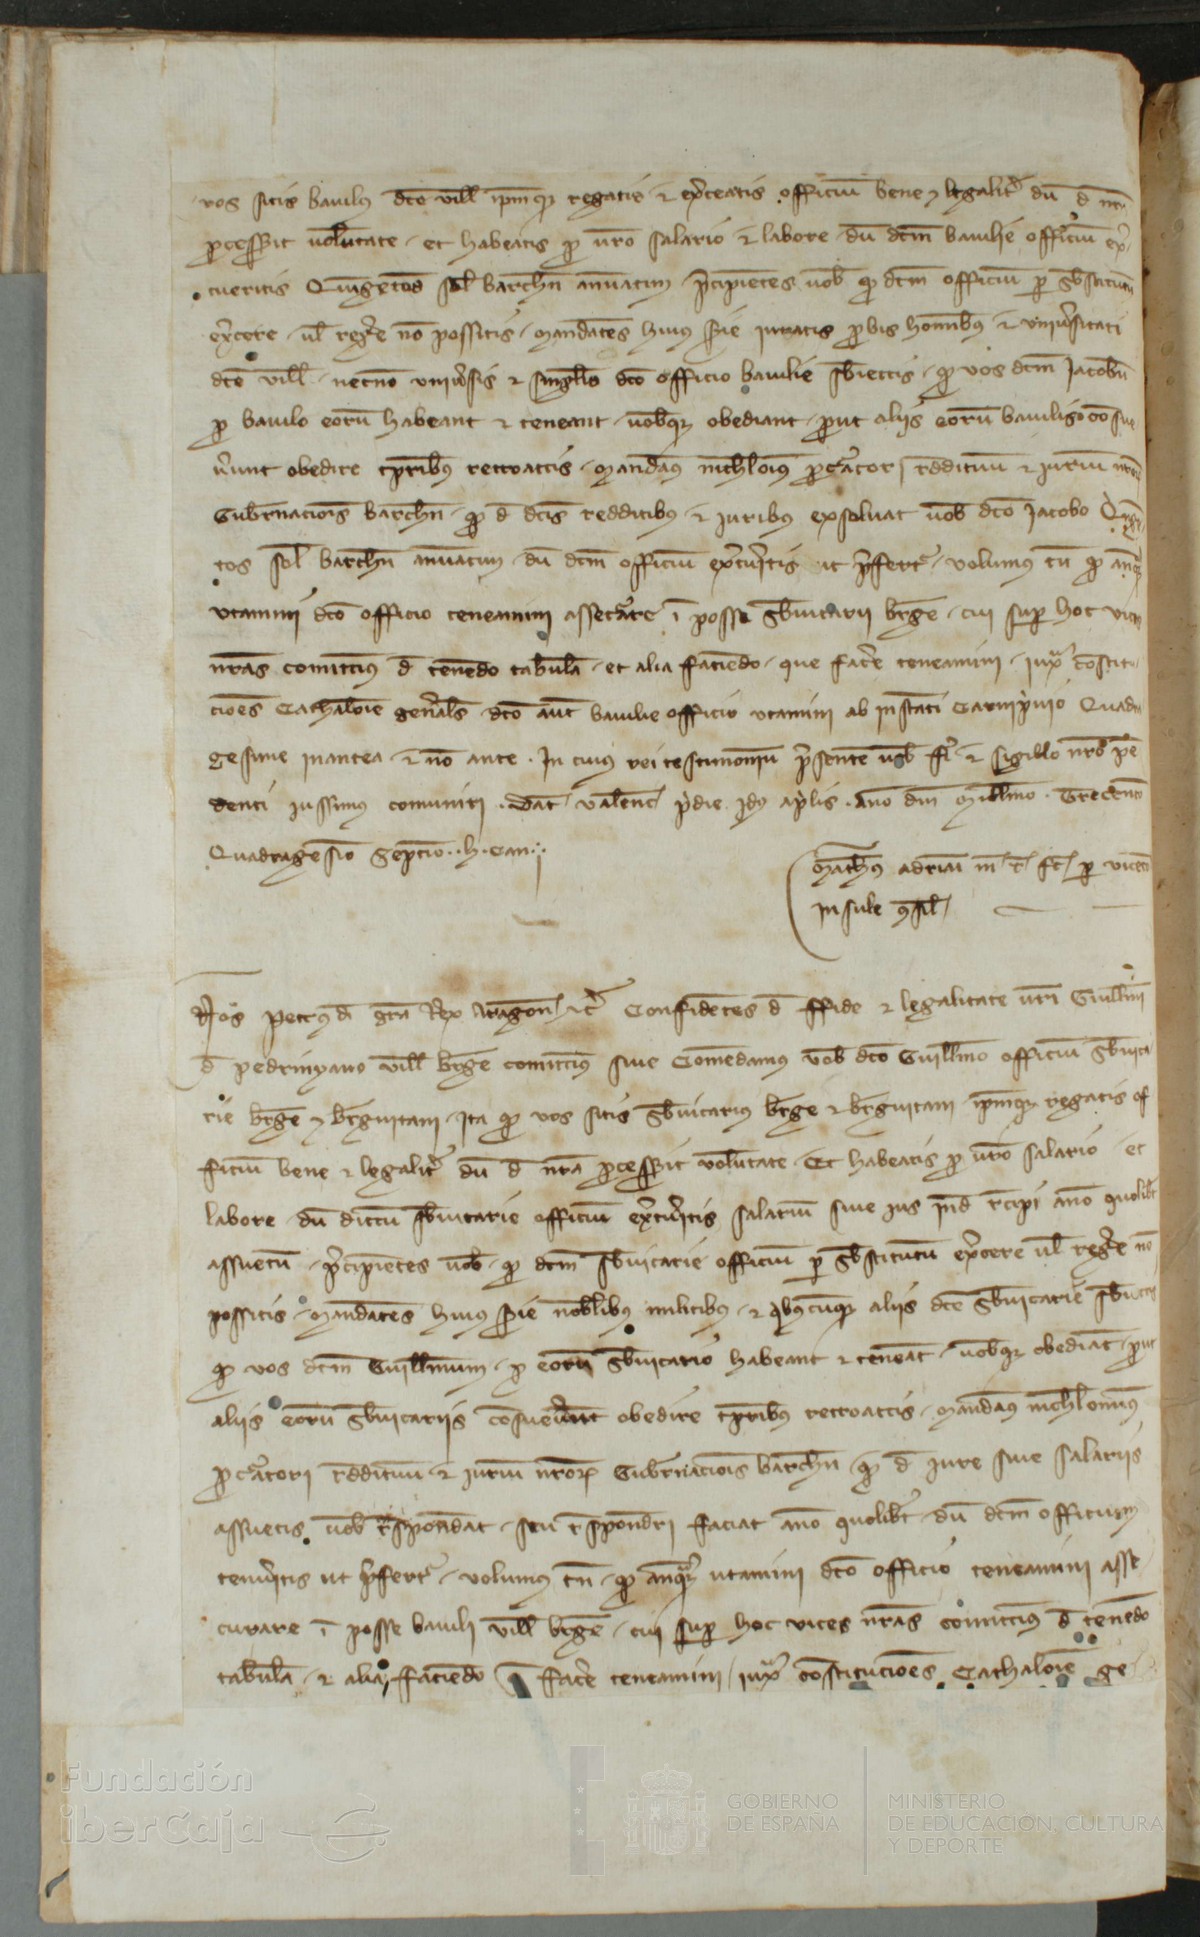 vos sitis baiulus dce vill ipmqz regatis et exceatis officiu bene et legalitr du d nra
pcesserit voluntate et habeatis p vro salario et labore du dcm baiulie officiu exer
cueritis Quigetos sol barchn annuatim pcipientes vob qd dcm officiu p substitutu
excere ul regere no possitis mandates huius sie iuratis pbis hominibus et universitati
dce vill necno universis et singlis dco officio baiulie sbiectis qd vos dcm Jacobu
p baiulo eoru habeant et teneant vobqz obediant put aliis eoru baiulis cosue
verunt obedire tpribus retroactis mandam michi pcuratori reddituu et iuriu nroru
Gubernacois barchn qd d dcis redditibus et iuribus exsoluat vob dco Jacobo Quige
tos sol barchn annuatim du dcm officiu excueritis ut pfertur volumus tn qd anqz
utamini dco officio teneamini assecurare i posse subvicarii berge cui sup hoc vices
nras comittimus d tenendo tabula et alia faciendo que facere teneamini iuxa costitu
ciones Cathalonie generals dco aut baiulie officio utamini ab instanti carnipvio Quadra
gesime inantea et no ante In cuius rei testimoniu psente vob fi et sigillo nro pe
denti iussimus comuniri Dat Valenc pdie idus aplis Ano dni Millmo Trecento
Quadragesio Septio h Can
Matheus adriani m r fc p vicecn
insule gsil
Nos Petrus di gra Rex Aragon etc Confidentes d ffide et legalitate vri Guillmi
d pedrinyano vill berge comittimus sive Comendamus vob dco Guillmo officiu subvica
rie berge et berguitani Ita qd vos sitis subvicarius berge et berguitani ipmqz regatis of
ficiu bene et legalitr du d nra pcesserit voluntate Et habeatis p vro salario et
labore du dictu subvicarie officiu excueritis salariu sive ius ind recipi ano quolibt
assuetu pcipientes vob qd dcm subvicarie officiu p substitutu excere ul regere no
possitis Mandates huius sie nobilibus militibus et qbuscumqz aliis dce subvicarie sbiectis
qd vos dcm Guillmum p eoru subvicario habeant et teneat vobqz obediat put
aliis eoru subvicariis cosueverunt obedire tpribus retroactis Mandam michi
pcuratori reddituu et iuriu nroru Gubernacois barchn qd d iure sive salariis
assuetis vob respondeat seu responderi faciat ano quolibt du dcm officium
tenueritis ut pfertur volumus tn qd anqz utamini dco officio teneamini asse
curare i posse baiuli vill berge cui sup hoc vices nras comittimus d tenendo
tabula et alia faciendo q facere teneamini iuxa constituciones Cathalonie ge
Fundación
iberCaja
GOBIERNO
DE ESPAÑA
MINISTERIO
DE EDUCACIÓN, CULTURA
Y DEPORTE